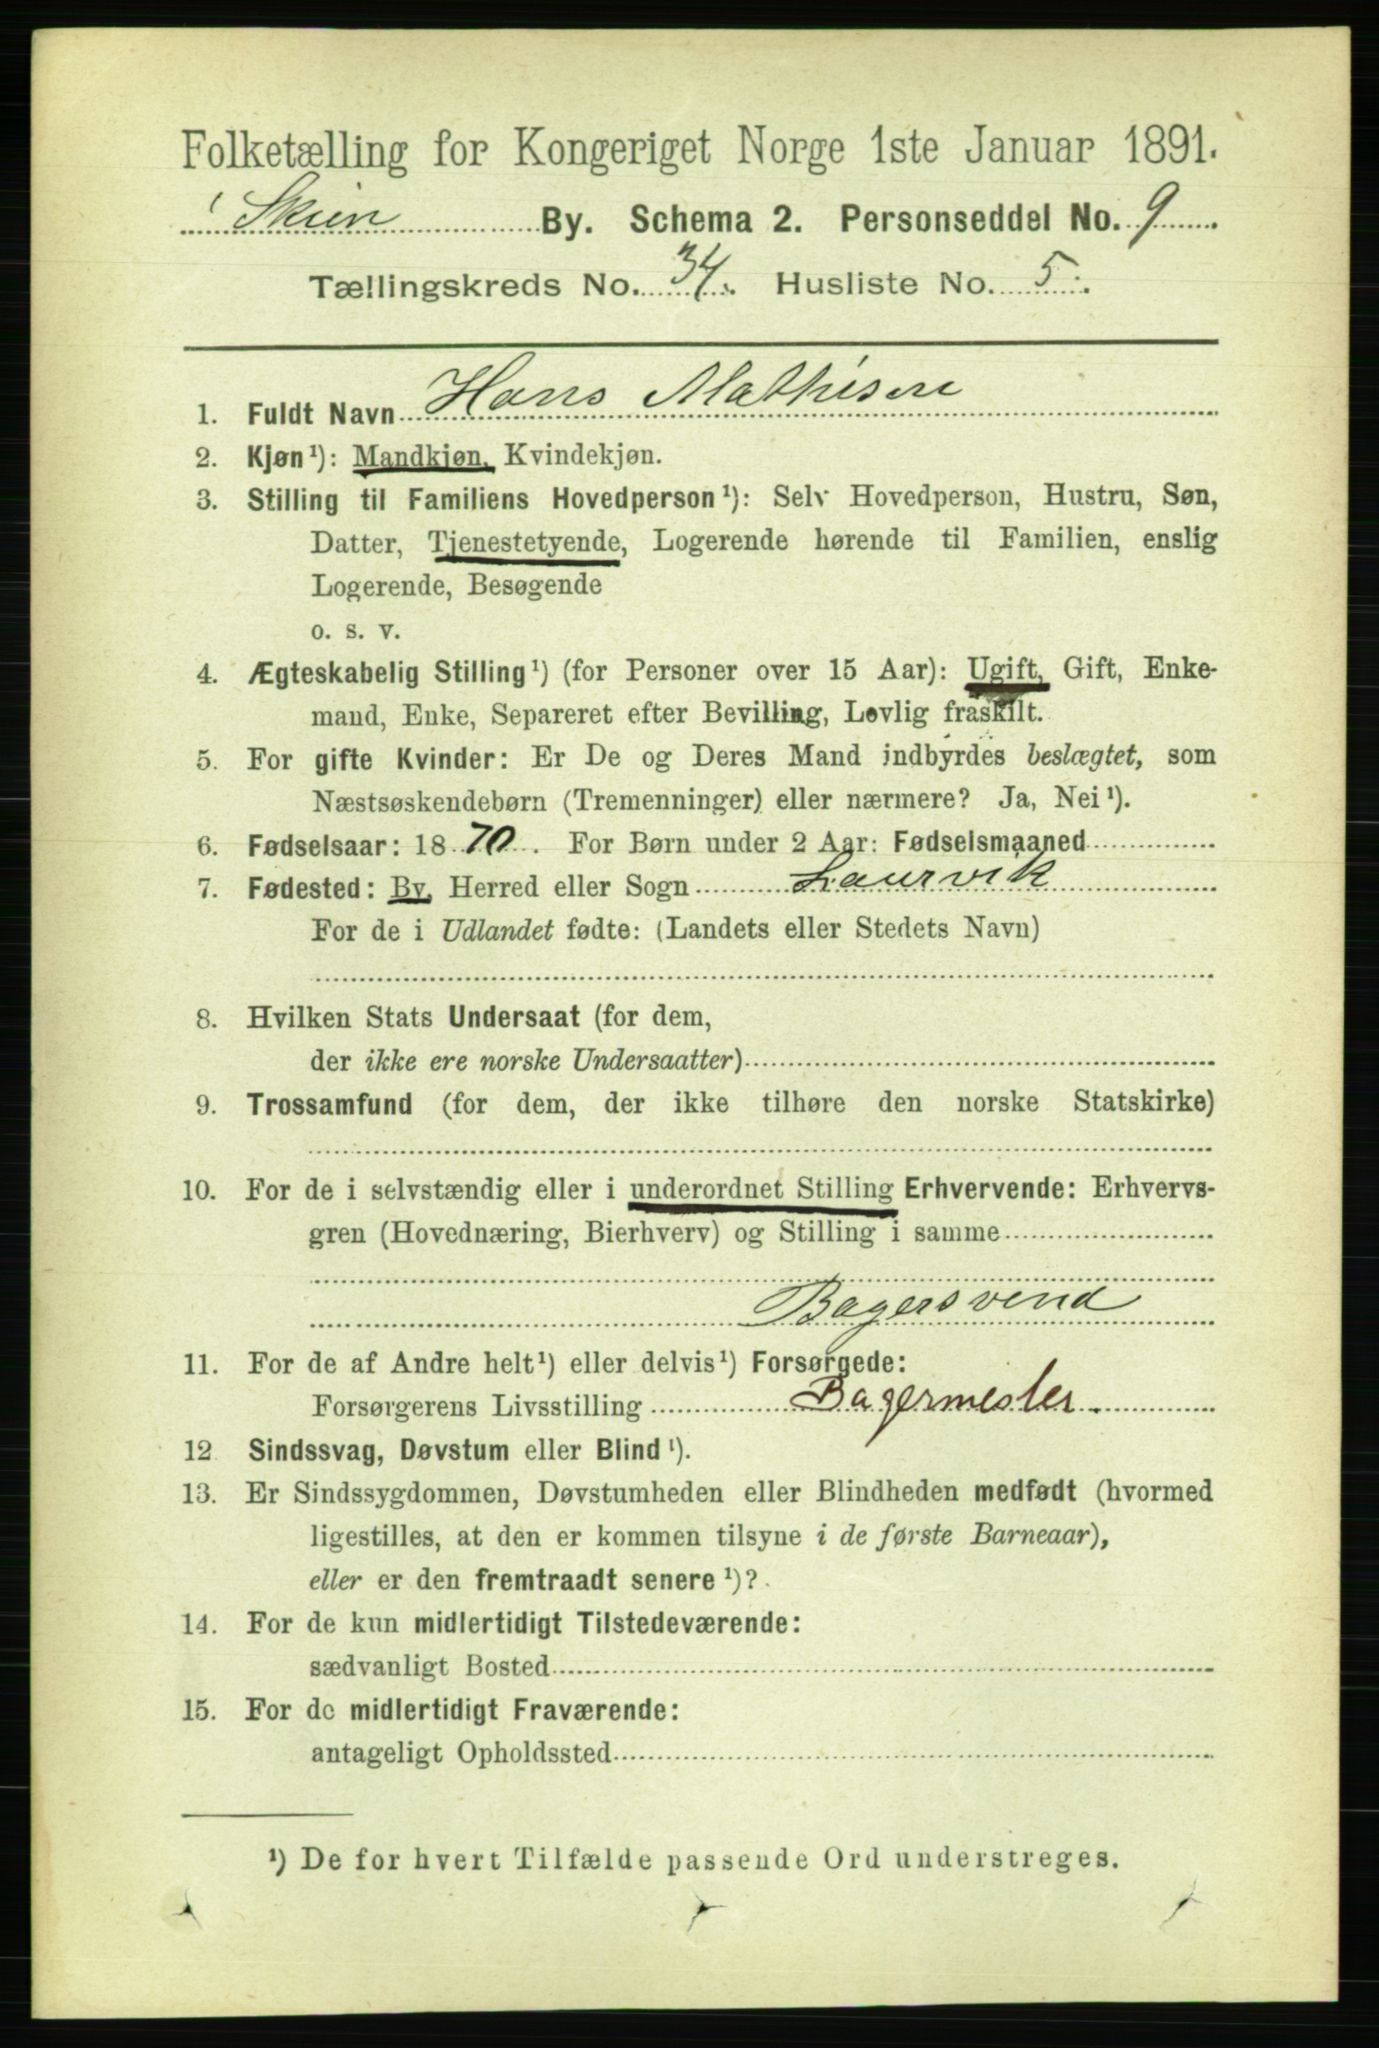 Folketælling for Kongeriget Norge 1ste Januar 1891.
Skien By. Schema 2. Personseddel No. 9
Tællingskreds No. 34. Husliste No. 5.
1. Fuldt Navn Hans Mathisen
2. Kjøn¹): Mandkjøn, Kvindekjøn.
3. Stilling til Familiens Hovedperson¹): Selv Hovedperson, Hustru, Søn,
Datter, Tjenestetyende, Logerende hørende til Familien, enslig
Logerende, Besøgende
o. s. v.
4. Ægteskabelig Stilling¹) (for Personer over 15 Aar): Ugift, Gift, Enke-
mand, Enke, Separeret efter Bevilling, Lovlig fraskilt.
5. For gifte Kvinder: Er De og Deres Mand indbyrdes beslægtet, som
Næstsøskendebørn (Tremenninger) eller nærmere? Ja, Nei¹).
6. Fødselsaar: 1870. For Børn under 2 Aar: Fødselsmaaned
7. Fødested: By, Herred eller Sogn Laurvik
For de i Udlandet fødte: (Landets eller Stedets Navn)
8. Hvilken Stats Undersaat (for dem,
der ikke ere norske Undersaatter)
9. Trossamfund (for dem, der ikke tilhøre den norske Statskirke)
10. For de i selvstændig eller i underordnet Stilling Erhvervende: Erhvervs-
gren (Hovednæring, Bierhverv) og Stilling i samme
Bagersvend
11. For de af Andre helt¹) eller delvis¹) Forsørgede:
Forsørgerens Livsstilling Bagermester.
12 Sindssvag, Døvstum eller Blind¹).
13. Er Sindssygdommen, Døvstumheden eller Blindheden medfødt (hvormed
ligestilles, at den er kommen tilsyne i de første Barneaar),
eller er den fremtraadt senere¹)?
14. For de kun midlertidigt Tilstedeværende:
sædvanligt Bosted
15. For de midlertidigt Fraværende:
antageligt Opholdssted
¹) De for hvert Tilfælde passende Ord understreges.